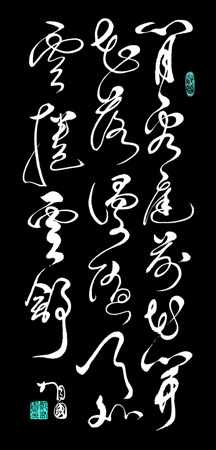 閒看庭前花開
花落漫隨天外
雲捲雲舒